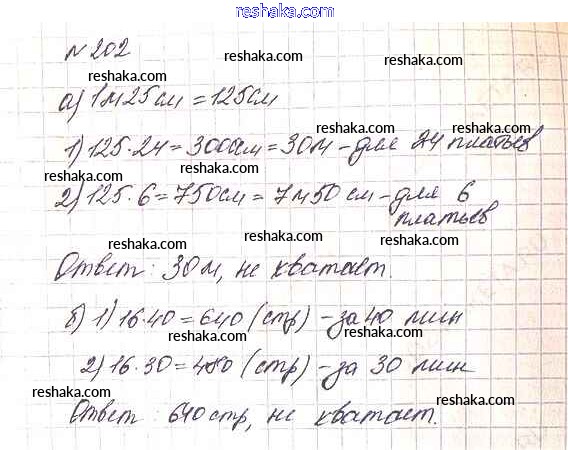 reshaka.com
№ 202
reshaka.com reshaka.com
reshaka.com
а) 1м25см = 125см
reshaka.com reshaka.com
1) 125·24 = 3000см = 30м – для 24 платьев
reshaka.com reshaka.com
2) 125·6 = 750см = 7м50см – для 6
платьев
reshaka.com reshaka.com
Ответ: 30м, не хватает.
reshaka.com reshaka.com
б) 1) 16·40 = 640 (стр) – за 40 мин
reshaka.com reshaka.com
2) 16·30 = 480 (стр) – за 30 мин
reshaka.com reshaka.com
Ответ: 640 стр, не хватает.
reshaka.com reshaka.com
reshaka.com